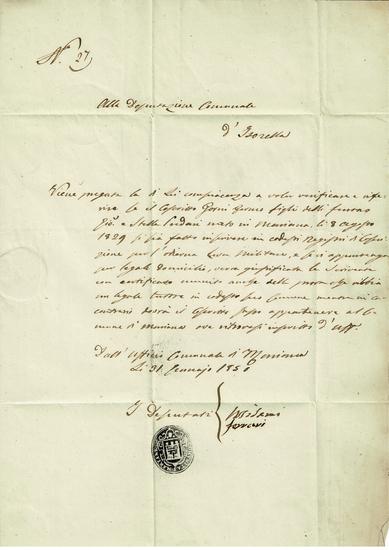 N.° 27
Alla Deputazione Comunale
d'Isorella
Viene pregata la di Lei compiacenza a voler verificare e rife-
rire se il Coscritto Gorni figlio delli furono
Gio. e Stella nato in Mariana li 8 agosto
1829 si sia fatto inscrivere in codesti Registri di Coscri-
zione per l'odierna Leva Militare, e se vi appartenga
per legale domicilio, verrà giustificata la
con certificato anche della prova che abbia
un legale tutore in codesto Comune mentre in caso
contrario dovrà il Coscritto stesso appartenere al Co-
mune di Mariana ove inscritto d'Uff.
Dall'Ufficio Comunale di Mariana
Li 31 Gennajo 1850
I Deputati
Ferrari